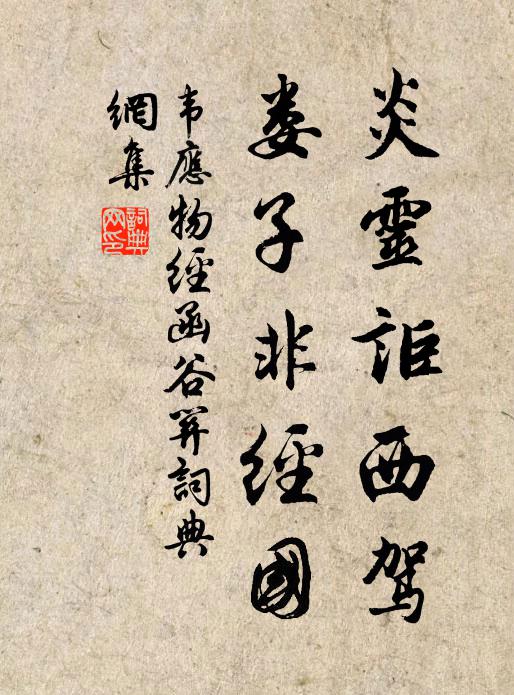 炎靈詎西駕
婁子非經國
韦應物經函谷関詞典
網集
詞典网印